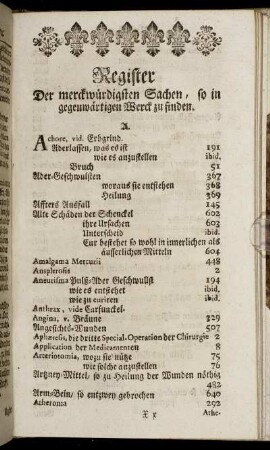 Register
Der merckwürdigsten Sachen, so in
gegenwärtigen Werck zu finden.
A.
Achore, vid. Erbgrind.
Aderlassen, was es ist 191
wie es anzustellen ibid.
Bruch 51
Ader-Geschwulsten 367
woraus sie entstehen 368
Heilung 369
Affters Ausfall 145
Alte Schäden der Schenckel 602
ihre Ursachen 603
Unterscheid ibid.
Cur bestehet so wohl in innerlichen als
äusserlichen Mitteln 604
Amalgama Mercurii 448
Amplerosis 2
Aneurisma Pulß-Ader Geschwulst 194
wie es entstehet ibid.
wie zu curiren ibid.
Anthrax, vide Carfunckel.
Angina, v. Bräune 329
Angesichts-Wunden 507
Aphæresis, die dritte Special-Operation der Chirurgie 2
Application der Medicamenten 8
Arteriotomia, wozu sie nütze 75
wie solche anzustellen 76
Artzney-Mittel, so zu Heilung der Wunden nöthig
482
Arm-Bein, so entzwey gebrochen 640
Atheroma 292
X x
Athe-